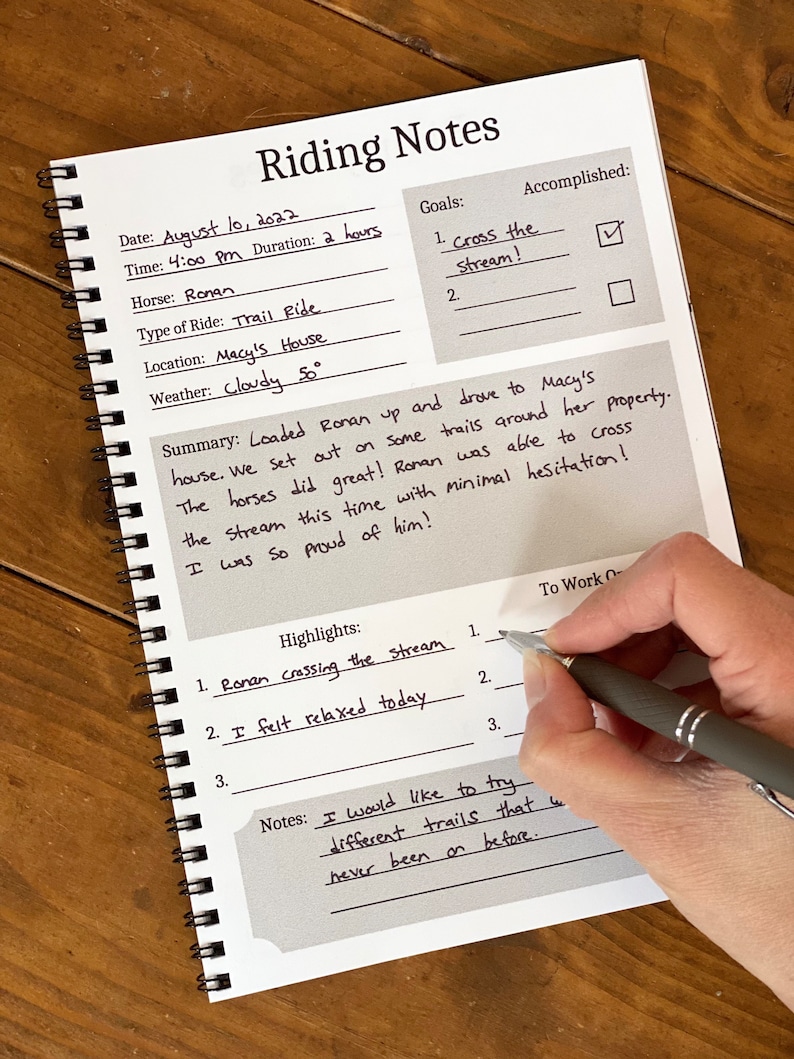 Riding Notes
Date: August 10, 2022
Time: 4:00 pm Duration: 2 hours
Horse: Ronan
Type of Ride: Trail Ride
Location: Macy's House
Weather: Cloudy 50°
Goals: Accomplished:
1. Cross the
stream!
2.
Summary: Loaded Ronan up and drove to Macy's
house. We set out on some trails around her property.
The horses did great! Ronan was able to cross
the stream this time with minimal hesitation!
I was so proud of him!
Highlights:
1. Ronan crossing the stream
2. I felt relaxed today
3.
To Work
1.
2.
3.
Notes: I would like to try
different trails that
never been on before.